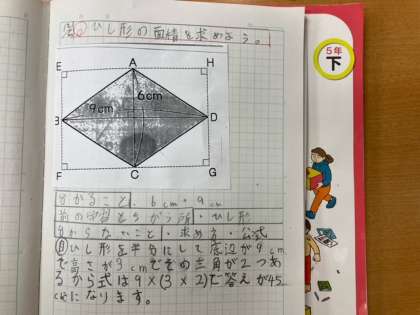 ひし形の面積を求めよう。
E A H
9cm 6cm
B D
F C G
分かること・6cm・9cm
前の学習とちがう所・ひし形
分からないこと・求め方・公式
自ひし形を半分にして底辺が9cm
で高さが3cmでその三角が2つあ
るから式は9×(3×2)で答えが45
cm²になります。
5年
下